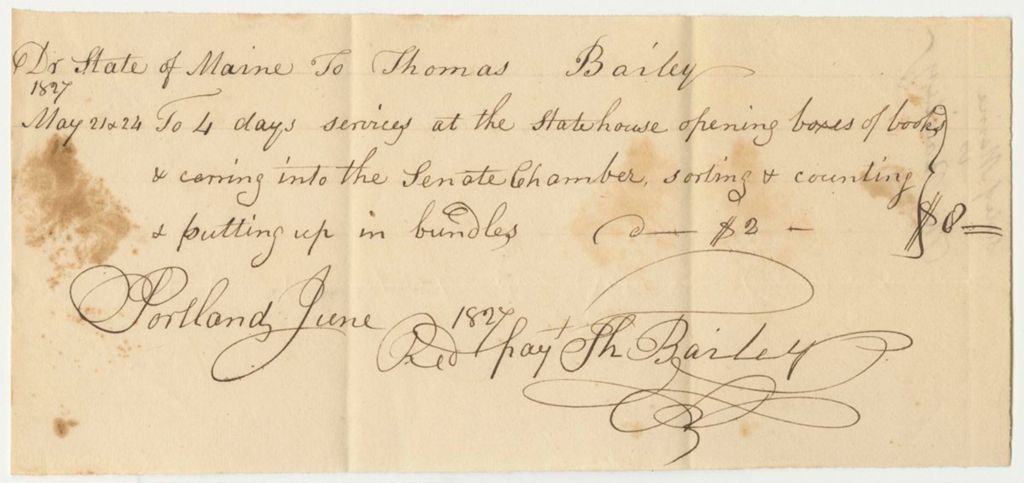 Dr State of Maine To Thomas Bailey
1827
May 21 & 24 To 4 days servicies at the Statehouse opening boxes of books
& carring into the Senate Chamber, sorting & counting
& putting up in bundles @ — $2 — $8
Portland June 1827
Recd payt Th Bailey